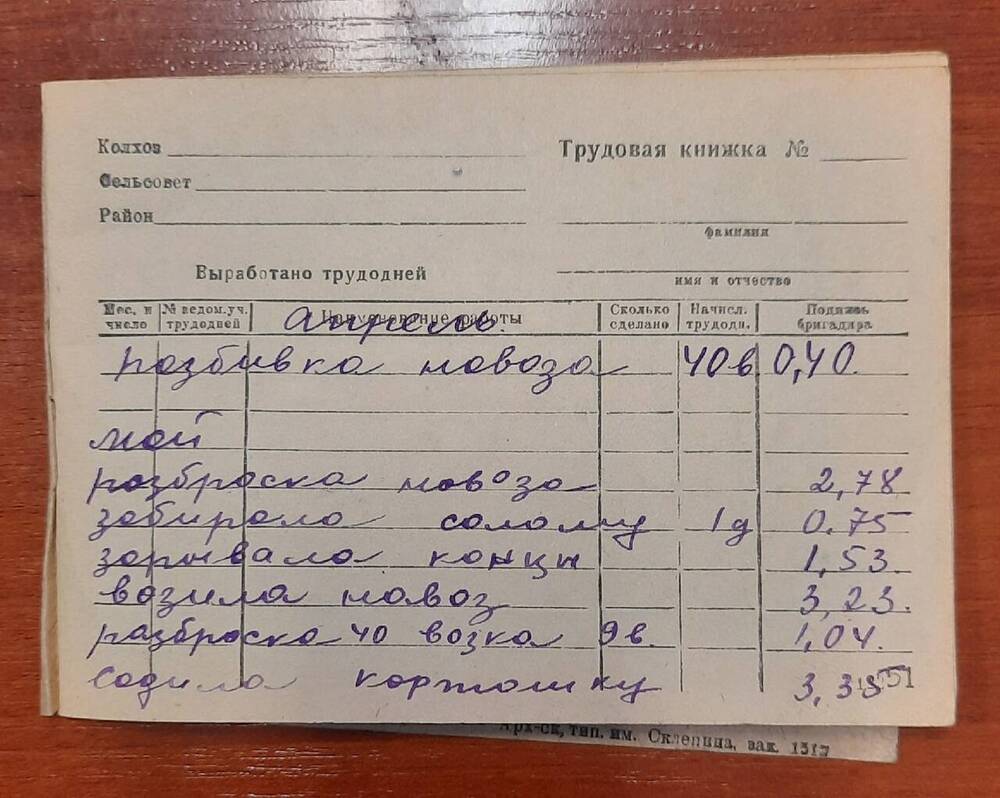 Колхоз
Трудовая книжка №
Сельсовет
Район
фамилия
Выработано трудодней
имя и отчество
Мес. и число
№ ведом.уч. трудодней
Наименование работы
Сколько сделано
Начисл. трудодн.
Подпись бригадира
апрель
разбивка навоза 40в 0,40.
май
разброска навоза 2,78
забирала солому 1д 0.75
зарывала концы 1,53.
возила навоз 3,23.
разброска 40 возка 9в. 1,04.
садила картошку 3,38
551
Арх-ск, тип. им. Склепина, зак. 1517